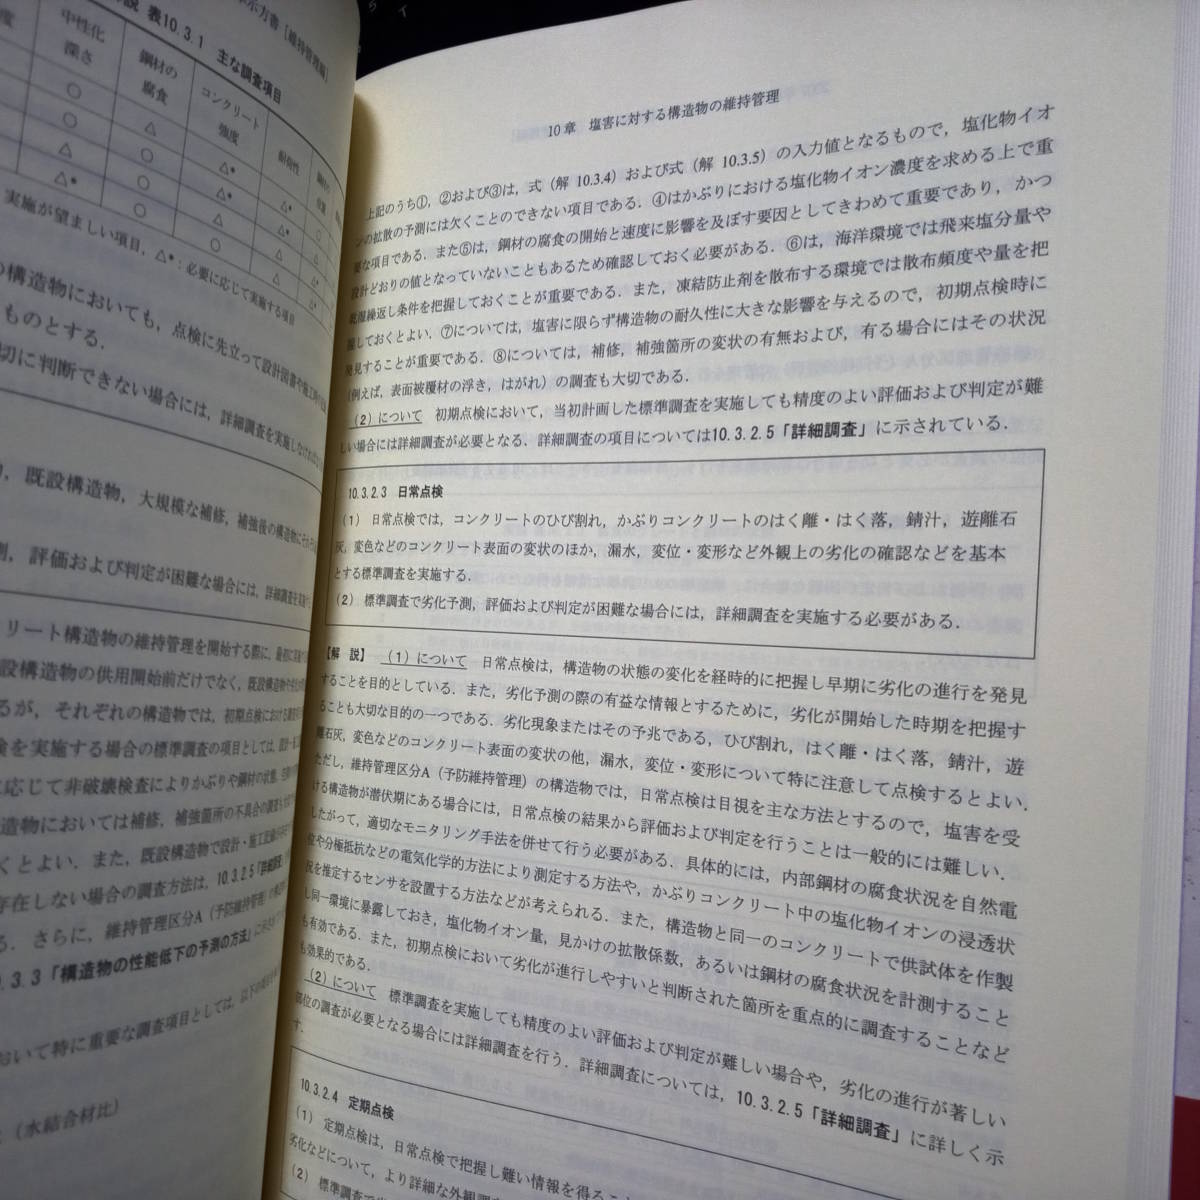 示方書［維持管理編］
表10.3.1 主な調査項目
中性化
深さ
鋼材の
腐食
コンクリート
強度
実施が望ましい項目，△*：必要に応じて実施する項目
の構造物においても，点検に先立って設計図書や
ものとする．
切に判断できない場合には，詳細調査を実施しなければ
，既設構造物，大規模な補修，補強後の構造物に
測，評価および判定が困難な場合には，詳細調査を実施
リート構造物の維持管理を開始する際に，最初に
設構造物の供用開始前だけでなく，既設構造物や
るが，それぞれの構造物では，初期点検における
検を実施する場合の標準調査の項目としては，設計
に応じて非破壊検査によりかぶりや鋼材の状態，
造物においては補修，補強箇所の不具合の調査
くとよい．また，既設構造物で設計・施工記録が
存在しない場合の調査方法は，10.3.2.5「詳細調査」
る．さらに，維持管理区分A（予防維持管理）の
.3.3「構造物の性能低下の予測の方法」に
おいて特に重要な調査項目としては，以下の
（水結合材比）
10章 塩害に対する構造物の維持管理
上記のうち①，②および③は，式（解 10.3.4）および式（解 10.3.5）の入力値となるもので，塩化物イオ
ンの拡散の予測には欠くことのできない項目である．④はかぶりにおける塩化物イオン濃度を求める上で重
要な項目である．また⑤は，鋼材の腐食の開始と速度に影響を及ぼす要因としてきわめて重要であり，かつ
設計どおりの値となっていないこともあるため確認しておく必要がある．⑥は，海洋環境では飛来塩分量や
乾湿繰返し条件を把握しておくことが重要である．また，凍結防止剤を散布する環境では散布頻度や量を把
握しておくとよい．⑦については，塩害に限らず構造物の耐久性に大きな影響を与えるので，初期点検時に
発見することが重要である．⑧については，補修，補強箇所の変状の有無および，有る場合にはその状況
（例えば，表面被覆材の浮き，はがれ）の調査も大切である．
（2）について 初期点検において，当初計画した標準調査を実施しても精度のよい評価および判定が難
しい場合には詳細調査が必要となる．詳細調査の項目については10.3.2.5「詳細調査」に示されている．
10.3.2.3 日常点検
（1） 日常点検では，コンクリートのひび割れ，かぶりコンクリートのはく離・はく落，錆汁，遊離石
灰，変色などのコンクリート表面の変状のほか，漏水，変位・変形など外観上の劣化の確認などを基本
とする標準調査を実施する．
（2） 標準調査で劣化予測，評価および判定が困難な場合には，詳細調査を実施する必要がある．
【解 説】 （1）について 日常点検は，構造物の状態の変化を経時的に把握し早期に劣化の進行を発見
することを目的としている．また，劣化予測の際の有益な情報とするために，劣化が開始した時期を把握す
ることも大切な目的の一つである．劣化現象またはその予兆である，ひび割れ，はく離・はく落，錆汁，遊
離石灰，変色などのコンクリート表面の変状の他，漏水，変位・変形について特に注意して点検するとよい．
ただし，維持管理区分A（予防維持管理）の構造物では，日常点検は目視を主な方法とするので，塩害を受
ける構造物が潜伏期にある場合には，日常点検の結果から評価および判定を行うことは一般的には難しい．
したがって，適切なモニタリング手法を併せて行う必要がある．具体的には，内部鋼材の腐食状況を自然電
位や分極抵抗などの電気化学的方法により測定する方法や，かぶりコンクリート中の塩化物イオンの浸透状
況を推定するセンサを設置する方法などが考えられる．また，構造物と同一のコンクリートで供試体を作製
し同一環境に暴露しておき，塩化物イオン量，見かけの拡散係数，あるいは鋼材の腐食状況を計測すること
も有効である．また，初期点検において劣化が進行しやすいと判断された箇所を重点的に調査することなど
も効果的である．
（2）について 標準調査を実施しても精度のよい評価および判定が難しい場合や，劣化の進行が著しい
部位の調査が必要となる場合には詳細調査を行う．詳細調査については，10.3.2.5「詳細調査」に詳しく示
す．
10.3.2.4 定期点検
（1） 定期点検は，日常点検で把握し難い情報を得ること
劣化などについて，より詳細な外観調
（2） 標準調査で